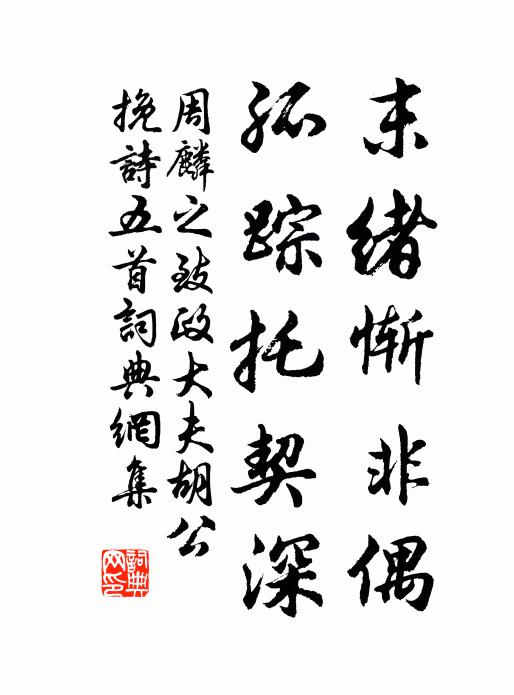 末緒慚非偶
孤踪托契深
周麟之致政大夫胡公
挽詩五首詞典網集
詞典
网印